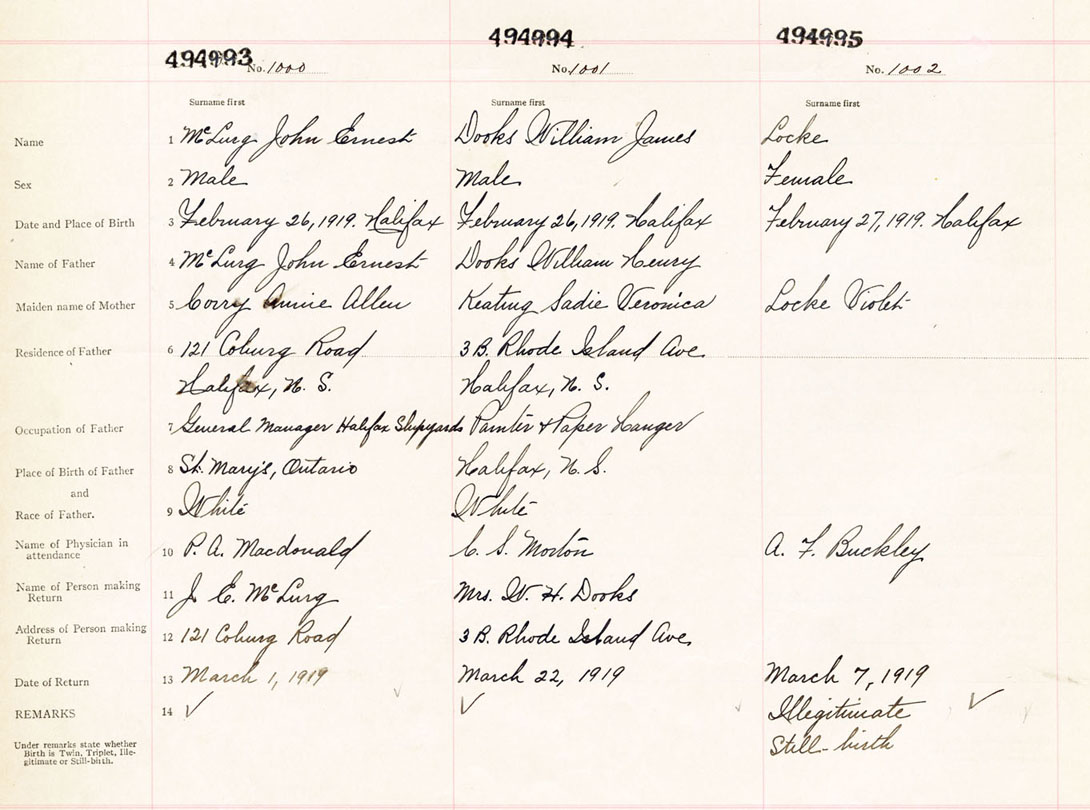 494993 No. 1000
494994 No. 1001
494995 No. 1002
Surname first Surname first Surname first
Name 1 McLurg John Ernest Dooks William James Locke
Sex 2 Male Male Female
Date and Place of Birth 3 February 26, 1919. Halifax February 26, 1919. Halifax February 27, 1919. Halifax
Name of Father 4 McLurg John Ernest Dooks William Henry
Maiden name of Mother 5 Corry Annie Allen Keating Sadie Veronica Locke Violet
Residence of Father 6 121 Coburg Road 3 B. Rhode Island Ave.
Halifax, N. S. Halifax, N. S.
Occupation of Father 7 General Manager Halifax Shipyards Painter & Paper Hanger
Place of Birth of Father 8 St. Mary's, Ontario Halifax, N. S.
and
Race of Father. 9 White White
Name of Physician in
attendance 10 P. A. Macdonald C. S. Morton A. F. Buckley
Name of Person making
Return 11 J. E. McLurg Mrs. W. H. Dooks
Address of Person making
Return 12 121 Coburg Road 3 B. Rhode Island Ave.
Date of Return 13 March 1, 1919 March 22, 1919 March 7, 1919
REMARKS 14 ✓ ✓ Illegitimate ✓
Still-birth
Under remarks state whether
Birth is Twin, Triplet, Ille-
gitimate or Still-birth.